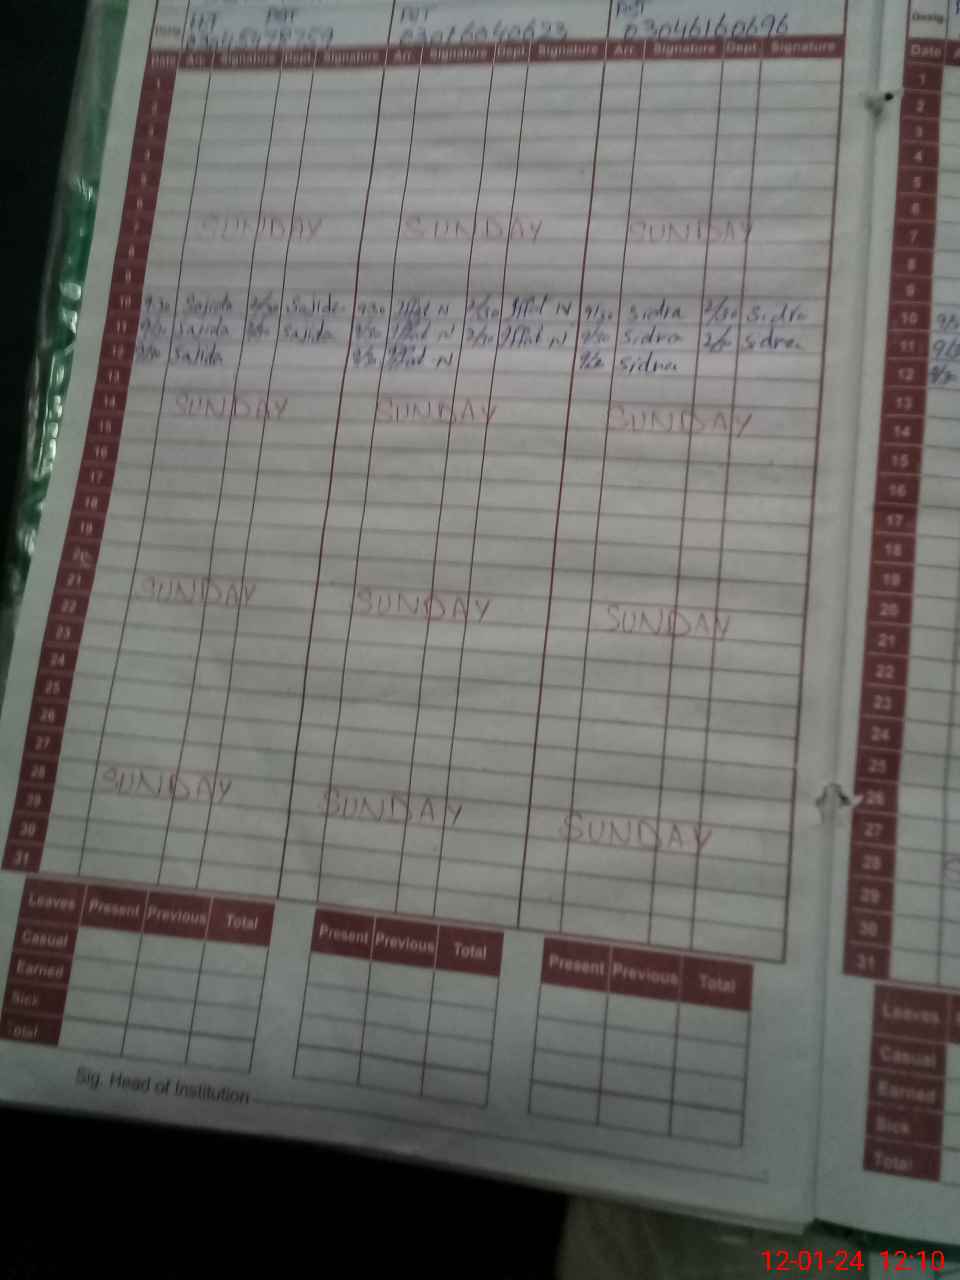 PST PST
Desig. 03016040623 03046160696 Desig.
Date Arr. Signature Dept. Signature Arr. Signature Dept. Signature Arr. Signature Dept. Signature Date
1 1
2 2
3 3
4 4
5 5
6 6
7 SUNDAY SUNDAY SUNDAY 7
8 8
9 9
10 9/30 Sajida 2/30 Sajida 9/30 N 2/30 N 9/30 Sidra 2/30 Sidra 10
11 Sajida Sajida N 2/30 N Sidra Sidra 11
12 Sajida N Sidra 12
13 13
14 SUNDAY SUNDAY SUNDAY 14
15 15
16 16
17 17
18 18
19 19
20 20
21 SUNDAY SUNDAY SUNDAY 21
22 22
23 23
24 24
25 25
26 26
27 27
28 SUNDAY SUNDAY SUNDAY 28
29 29
30 30
31 31
Leaves Present Previous Total Present Previous Total Present Previous Total Leaves
Casual Casual
Earned Earned
Sick Sick
Total Total
Sig. Head of Institution
12-01-24 12:10